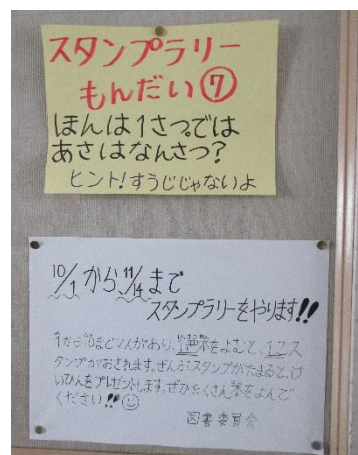 スタンプラリー
もんだい⑦
ほんは1さつ。では
あさはなんさつ？
ヒント!すうじじゃないよ
10/1から、11/14まで
スタンプラリーをやります!!
1から10までマスがあり、1冊本をよむと、1コス
タンプがおされます。ぜんぶスタンプがたまると、け
いひんをプレゼントします。ぜひたくさん本をよんで
ください!!☺
図書委員会